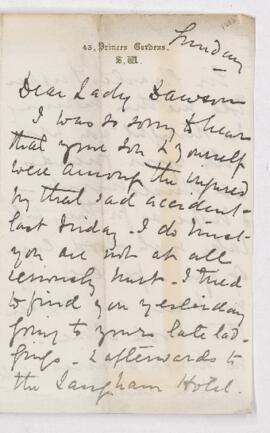 43, Princes Gardens.
S.W.
Sunday
Dear Lady Dawson
I was so sorry to hear
that your son & yourself
were among the injured
by that sad accident
last Friday. I do trust
you are not at all
seriously hurt. I tried
to find you yesterday
going to your late lod-
gings. & afterwards to
the Langham Hotel.